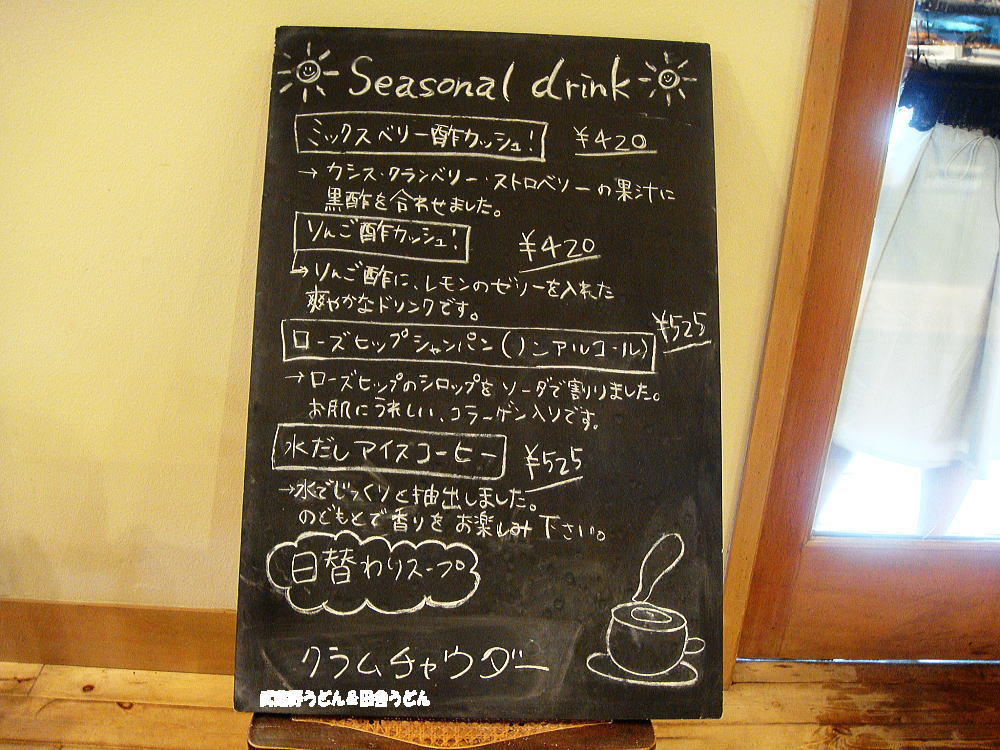 Seasonal drink
ミックスベリー酢カッシュ! ¥420
→ カシス・クランベリー・ストロベリーの果汁に
黒酢を合わせました。
りんご酢カッシュ! ¥420
→りんご酢に、レモンのゼリーを入れた
爽やかなドリンクです。
ローズヒップシャンパン(ノンアルコール) ¥525
→ローズヒップのシロップをソーダで割りました。
お肌にうれしい、コラーゲン入りです。
水だしアイスコーヒー ¥525
→水でじっくりと抽出しました。
のどもとで香りをお楽しみ下さい。
日替わりスープ
クラムチャウダー
武蔵野うどん&田舎うどん